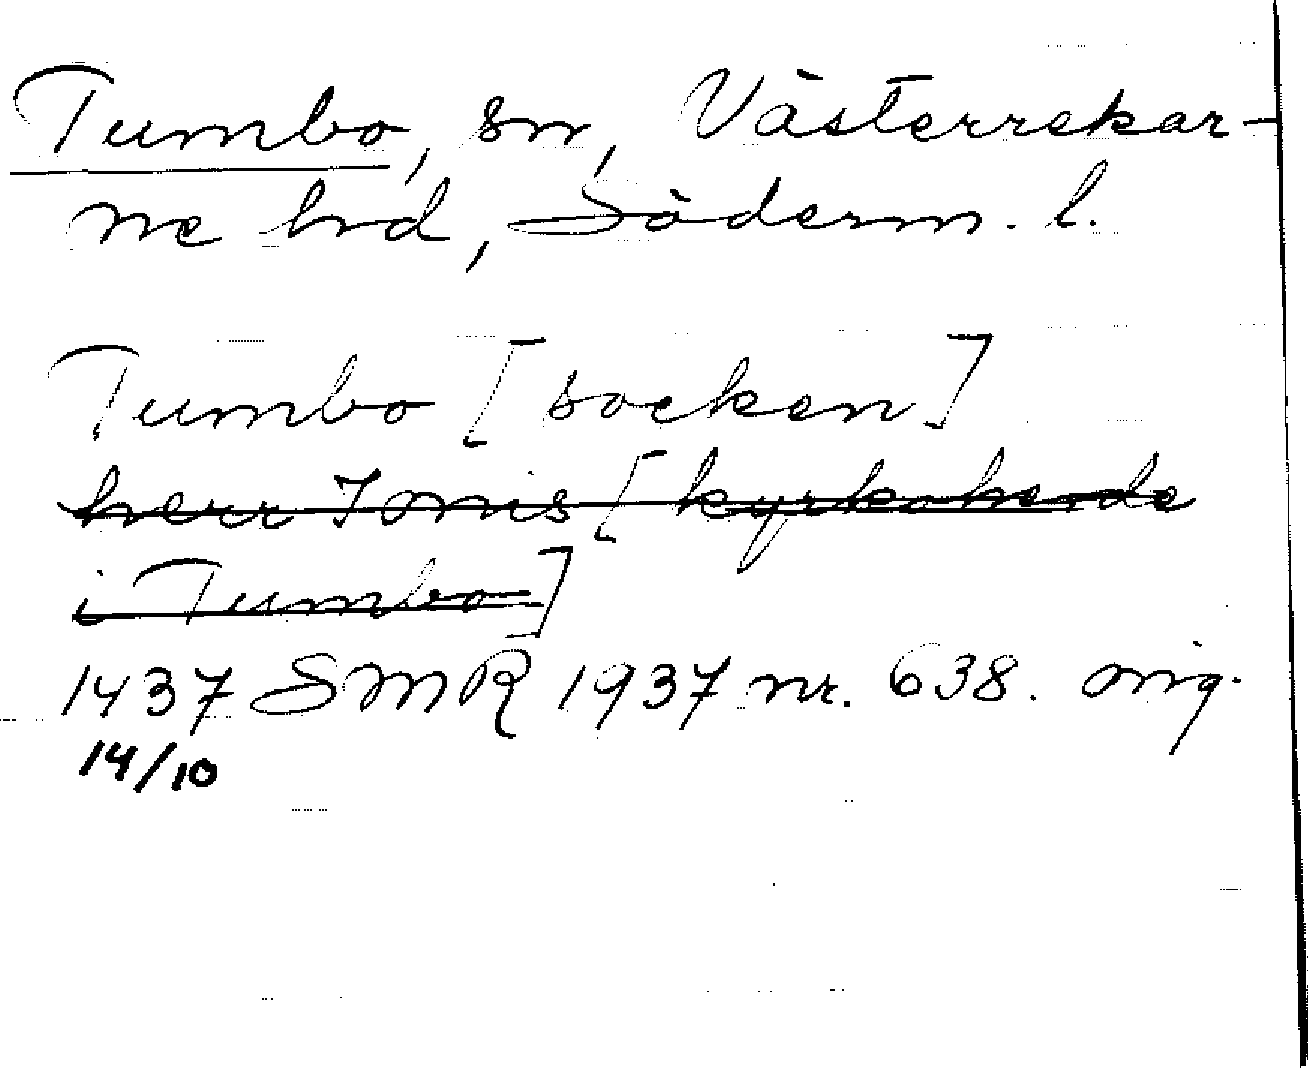 Tumbo, sn, Västerrekar-
ne hd, Söderm. l.
Tumbo [socken]
herr Jönis [kyrkoherde
i Tumbo]
1437 SMR 1937 nr. 638. orig.
14/10